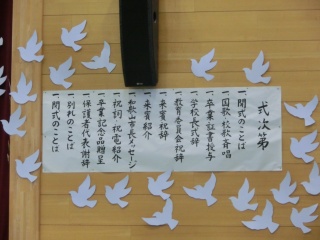 式次第
一開式のことば
一国歌 校歌 斉唱
一卒業証書授与
一学校長式辞
一教育委員会祝辞
一来賓祝辞
一来賓紹介
一和歌山市長メッセージ
一祝詞 祝電紹介
一卒業記念品贈呈
一保護者代表謝辞
一別れのことば
一閉式のことば